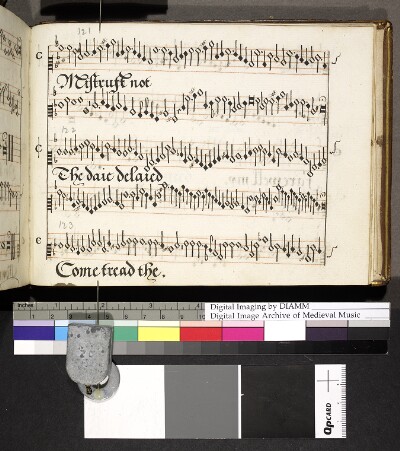 121
Mistrust not
122
The daie delaied
123
Come tread the.
inches 1 2
Digital Imaging by DIAMM
Digital Image Archive of Medieval Music
QPCARD